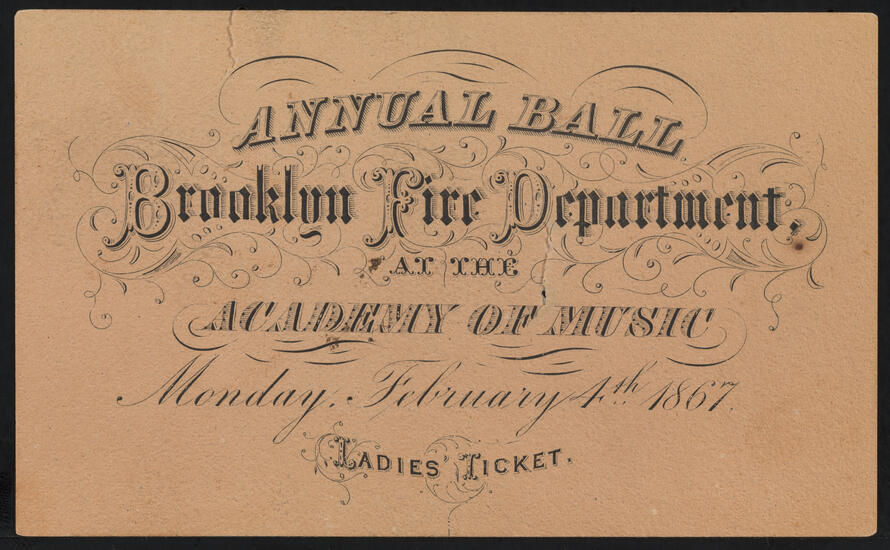 ANNUAL BALL
Brooklyn Fire Department,
AT THE
ACADEMY OF MUSIC
Monday, February 4th 1867.
LADIES' TICKET.